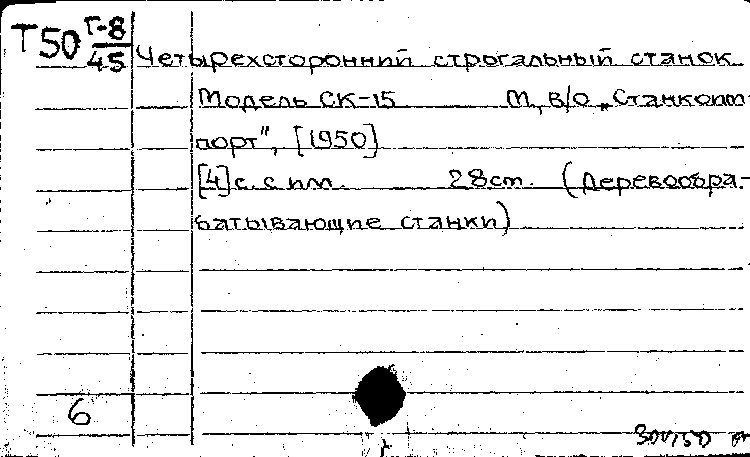 Т50 Г-8/45
Четырехсторонний строгальный станок
Модель СК-15 М, в/о „Станкоим
порт", [1950]
[4] с. с илл. 28 см. (Деревообра-
батывающие станки)
6
30V150